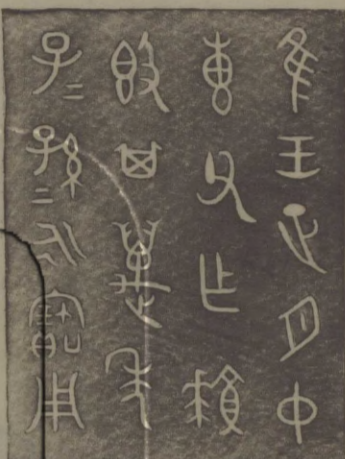 隹王正月中
叀父乍
𣪘其萬年
子=孫=永寶用